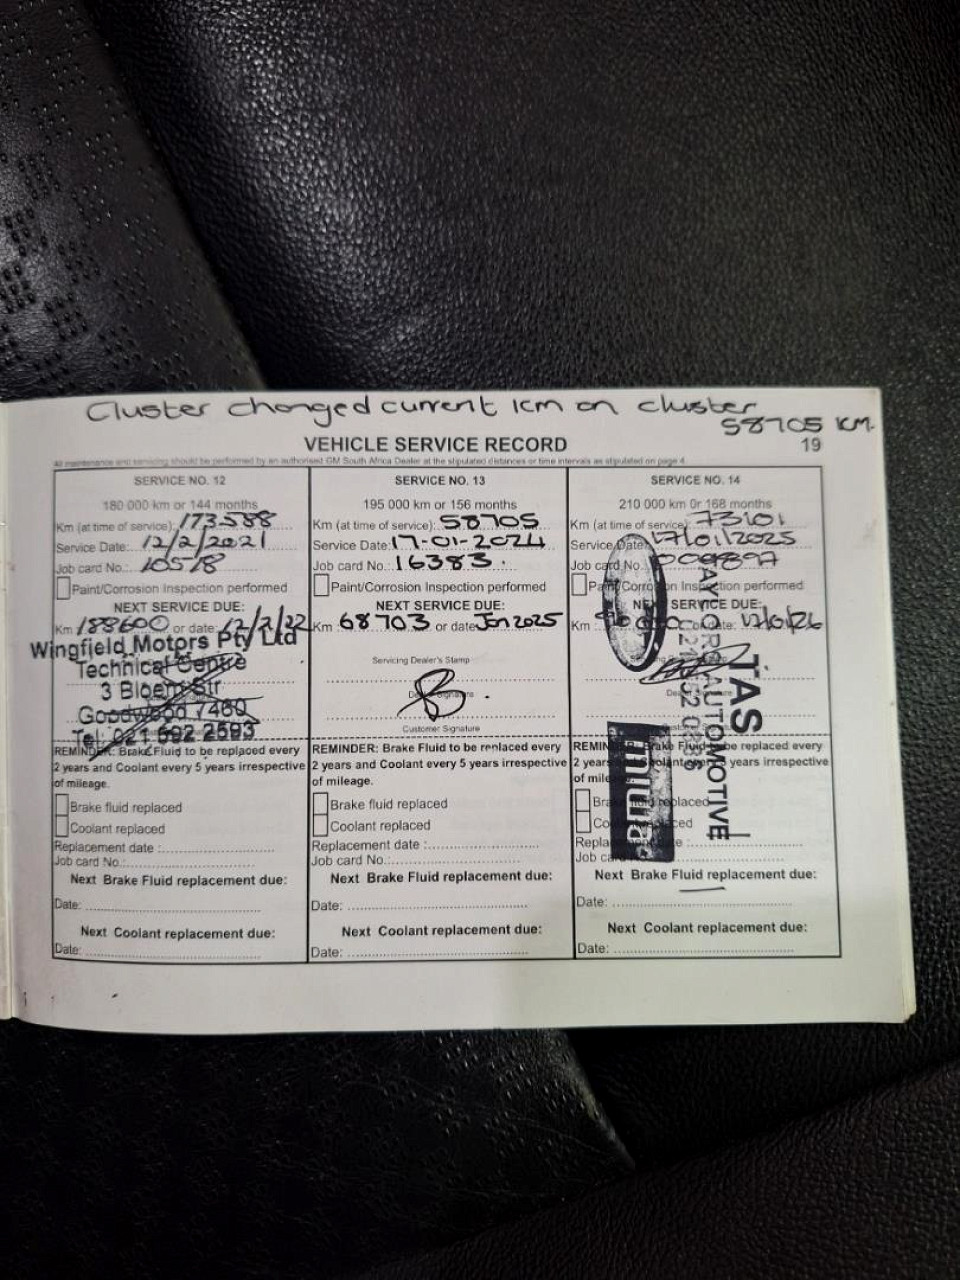 Cluster changed current km on cluster
58705 KM.
VEHICLE SERVICE RECORD
19
All maintenance and servicing should be performed by an authorised GM South Africa Dealer at the stipulated distances or time intervals as stipulated on page 4.
SERVICE NO. 12
180 000 km or 144 months
Km (at time of service): 173588
Service Date: 12/2/2021
Job card No.: 10578
Paint/Corrosion Inspection performed
NEXT SERVICE DUE:
Km 188600 or date: 12/2/22
Wingfield Motors Pty Ltd
Technical Centre
3 Bloem Str
Goodwood 7460
Tel: 021 592 2593
REMINDER: Brake Fluid to be replaced every
2 years and Coolant every 5 years irrespective
of mileage.
Brake fluid replaced
Coolant replaced
Replacement date :
Job card No.:
Next Brake Fluid replacement due:
Date:
Next Coolant replacement due:
Date:
SERVICE NO. 13
195 000 km or 156 months
Km (at time of service): 58705
Service Date: 17-01-2024
Job card No.: 16383.
Paint/Corrosion Inspection performed
NEXT SERVICE DUE:
Km 68703 or date: Jan 2025
Servicing Dealer's Stamp
Signature
Customer Signature
REMINDER: Brake Fluid to be replaced every
2 years and Coolant every 5 years irrespective
of mileage.
Brake fluid replaced
Coolant replaced
Replacement date :
Job card No.:
Next Brake Fluid replacement due:
Date:
Next Coolant replacement due:
Date:
SERVICE NO. 14
210 000 km or 168 months
Km (at time of service): 73101
Service Date: 17/01/2025
Job card No.:
Paint/Corrosion Inspection performed
NEXT SERVICE DUE:
Km date: 17/01/26
TAS
TAYLORS AUTOMOTIVE
REMINDER: Brake Fluid to be replaced every
2 years and Coolant every 5 years irrespective
of mileage.
Brake fluid replaced
Coolant replaced
Replacement date :
Job card
Next Brake Fluid replacement due:
Date:
Next Coolant replacement due:
Date: